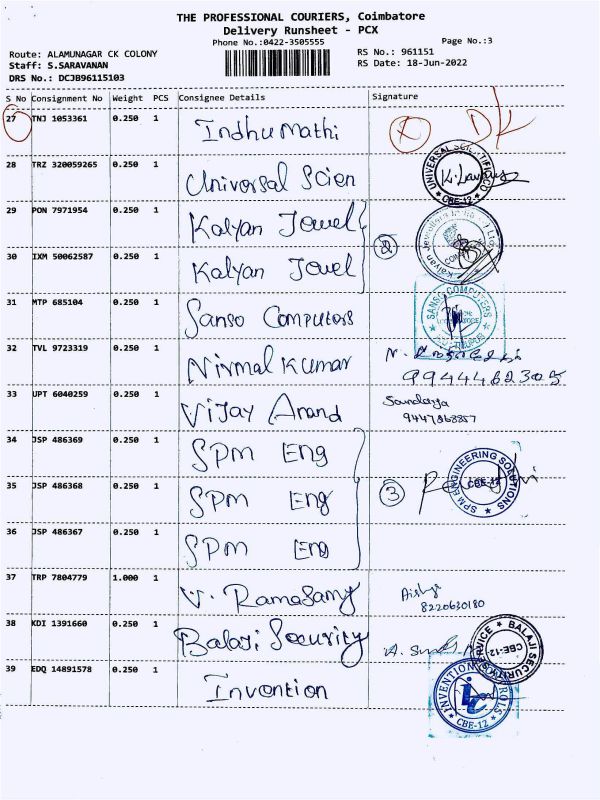 THE PROFESSIONAL COURIERS, Coimbatore
Delivery Runsheet - PCX
Phone No.:0422-3505555
Page No.:3
Route: ALAMUNAGAR CK COLONY
RS No.: 961151
Staff: S.SARAVANAN
RS Date: 18-Jun-2022
DRS No.: DCJB96115103
S No Consignment No Weight PCS Consignee Details Signature
27 TNJ 1053361 0.250 1 Indhumathi DK
28 TRZ 320059265 0.250 1 Universal Scien UNIVERSAL SCIENTIFIC CO CBE-12
29 PON 7971954 0.250 1 Kalyan Jewel
30 IXM 50062587 0.250 1 Kalyan Jewel 2
31 MTP 685104 0.250 1 Sanso Computers SANSO COMPUTERS
32 TVL 9723319 0.250 1 Nirmal Kumar
9944462305
33 UPT 6040259 0.250 1 Vijay Anand Soundarya
34 JSP 486369 0.250 1 SPM Eng
35 JSP 486368 0.250 1 SPM Eng 3 SPM ENGINEERING SOLUTIONS CBE-12
36 JSP 486367 0.250 1 SPM Eng
37 TRP 7804779 1.000 1 V. Ramasamy
8220630180
38 KDI 1391660 0.250 1 Balaji Security BALAJI SECURITY SERVICE CBE-12
39 EDQ 14891578 0.250 1 Invention INVENTION CBE-12